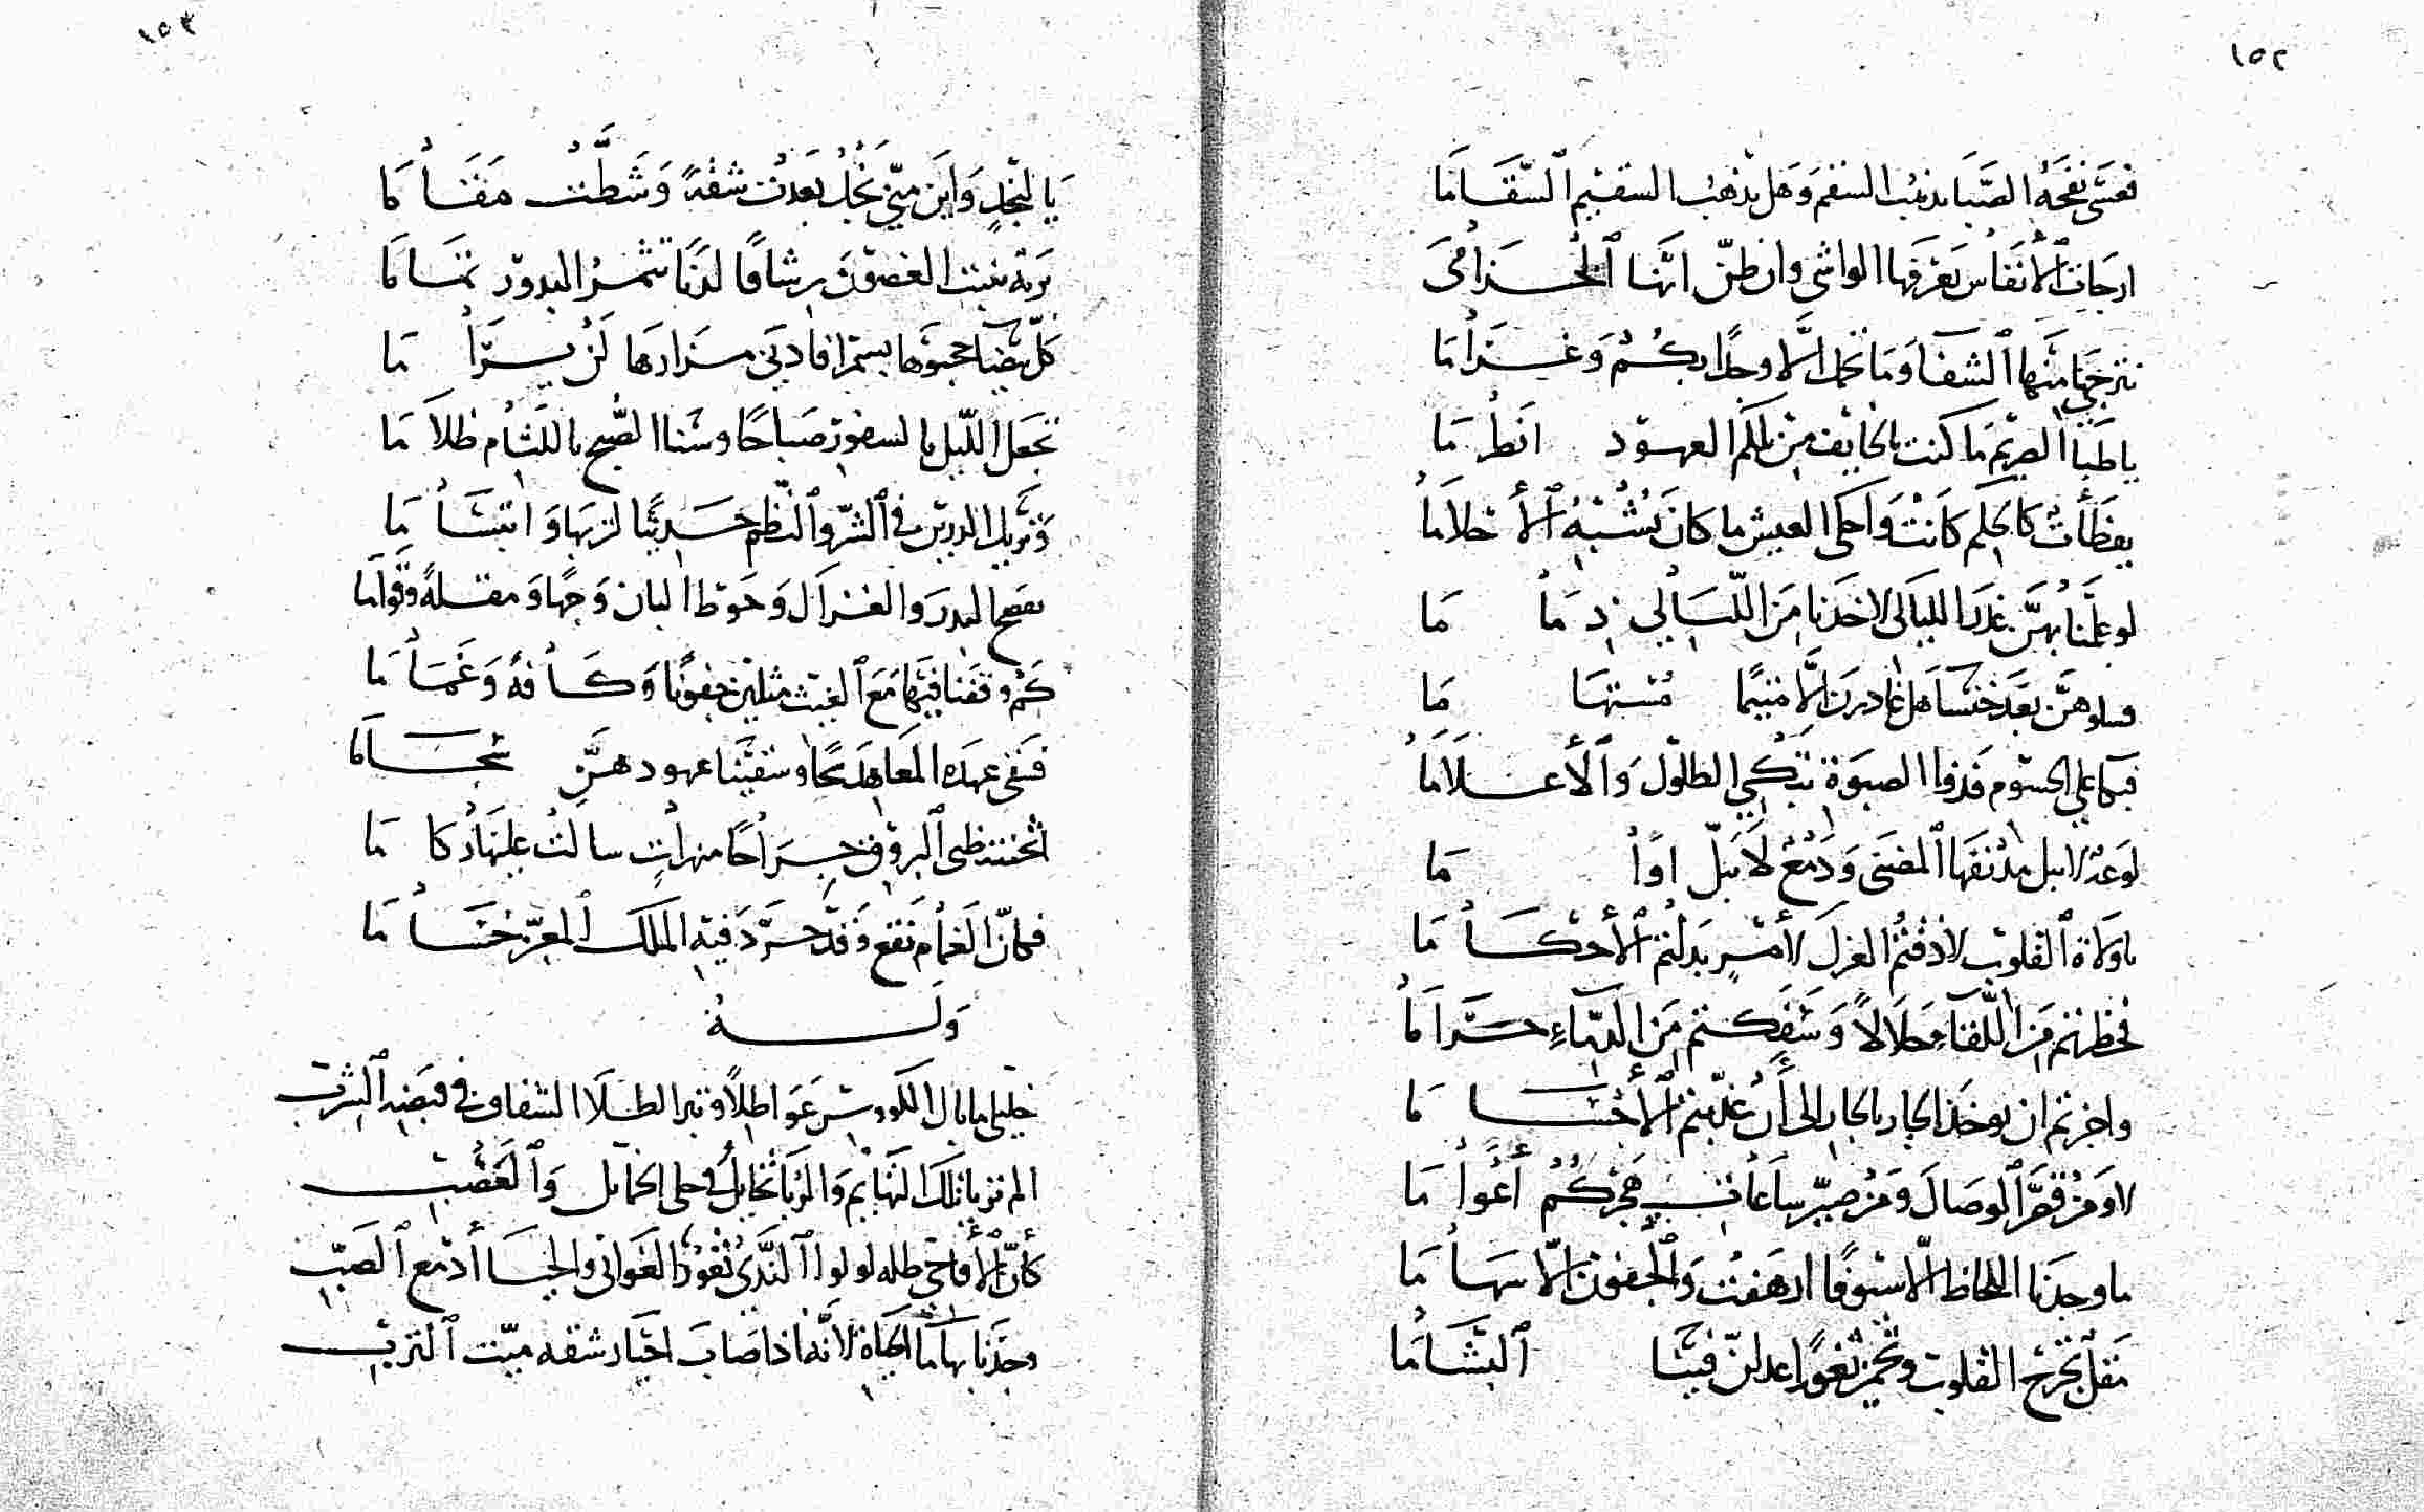 ١٥٢
فعسى نفحة الصبا يذهب السقم وهل يذهب السقيم السقاما
ارجات الأنفاس يعرفها الواشي وان ظن انها الخزامى
نترجى منها الشفا وما تحمل الا وجدا بكم وغراما
يا ظبا الصريم ما كنت بالخايف من تلكم العهود انطراما
يقظات كالحلم كانت واحلى العيش ما كان يشبه الأحلاما
لو علمنا بهن غدر الليالي لاخذنا من الليالي ذماما
فسلوهن بعد خنسا هل غادرن الا متيما مستهاما
فبكا علي الجسوم قذفوا الصبوة تبكي الطلول والأعلاما
لوعة لا تبل مدنفها المضنى ودمع لا يبل اواما
يا ولاة القلوب لا ذقتم العزل لأمر بدلتم الأحكاما
فحظرتم من اللقاء حلالا وسفكتم من الدماء حراما
واجزتم ان يوخذ الجار بالجار الى أن عذبتم الأجساما
لا ومن قصر الوصال ومن صير ساعات هجركم أعواما
ما وجدنا اللحاظ الا سيوفا ارهفت والجفون الا سهاما
مقل تجرح القلوب وتحمي ثغورا عدلن فينا البشاما
١٥٣
يا لنجد واين مني نجد بعدت شقة وشطت مقاما
تربة تنبت الغصون رشاقا لدنا تثمر البدور تماما
كل بيضا حجبوها بسمر افادنى مزارها لن يراما
تجعل الليل بالسفور صباحا وسنا الصبح باللثام ظلاما
وتريك الدرين في النثر والنظم حديثا لتربها وابتساما
تفضح البدر والغزال وخوط البان وجها ومقلة وقواما
كم وقفنا فيها مع الغيث مثلين جفونا وكافة وغماما
فسقى عهده المعاهد سحا وسقينا عهودهن سجاما
اثخنت ظبى البروق جراحا منه راحت سالت علينا ركاما
فكان الغمام نقع وقد جرد فيه الملك المعز حساما
وله
خليلي ما بال الكووس عواطلا وتبر الطلا الشفاف في قبضة الشرب
الم تريا تلك التهايم والربا تخايل في حلى الخمايل والعصب
كأن الأقاحي طله لولو الندى ثغور الغواني والحيا أدمع الصب
وجدنا بها ما الحياة لانه اذا صاب احيا رشفه ميت الترب